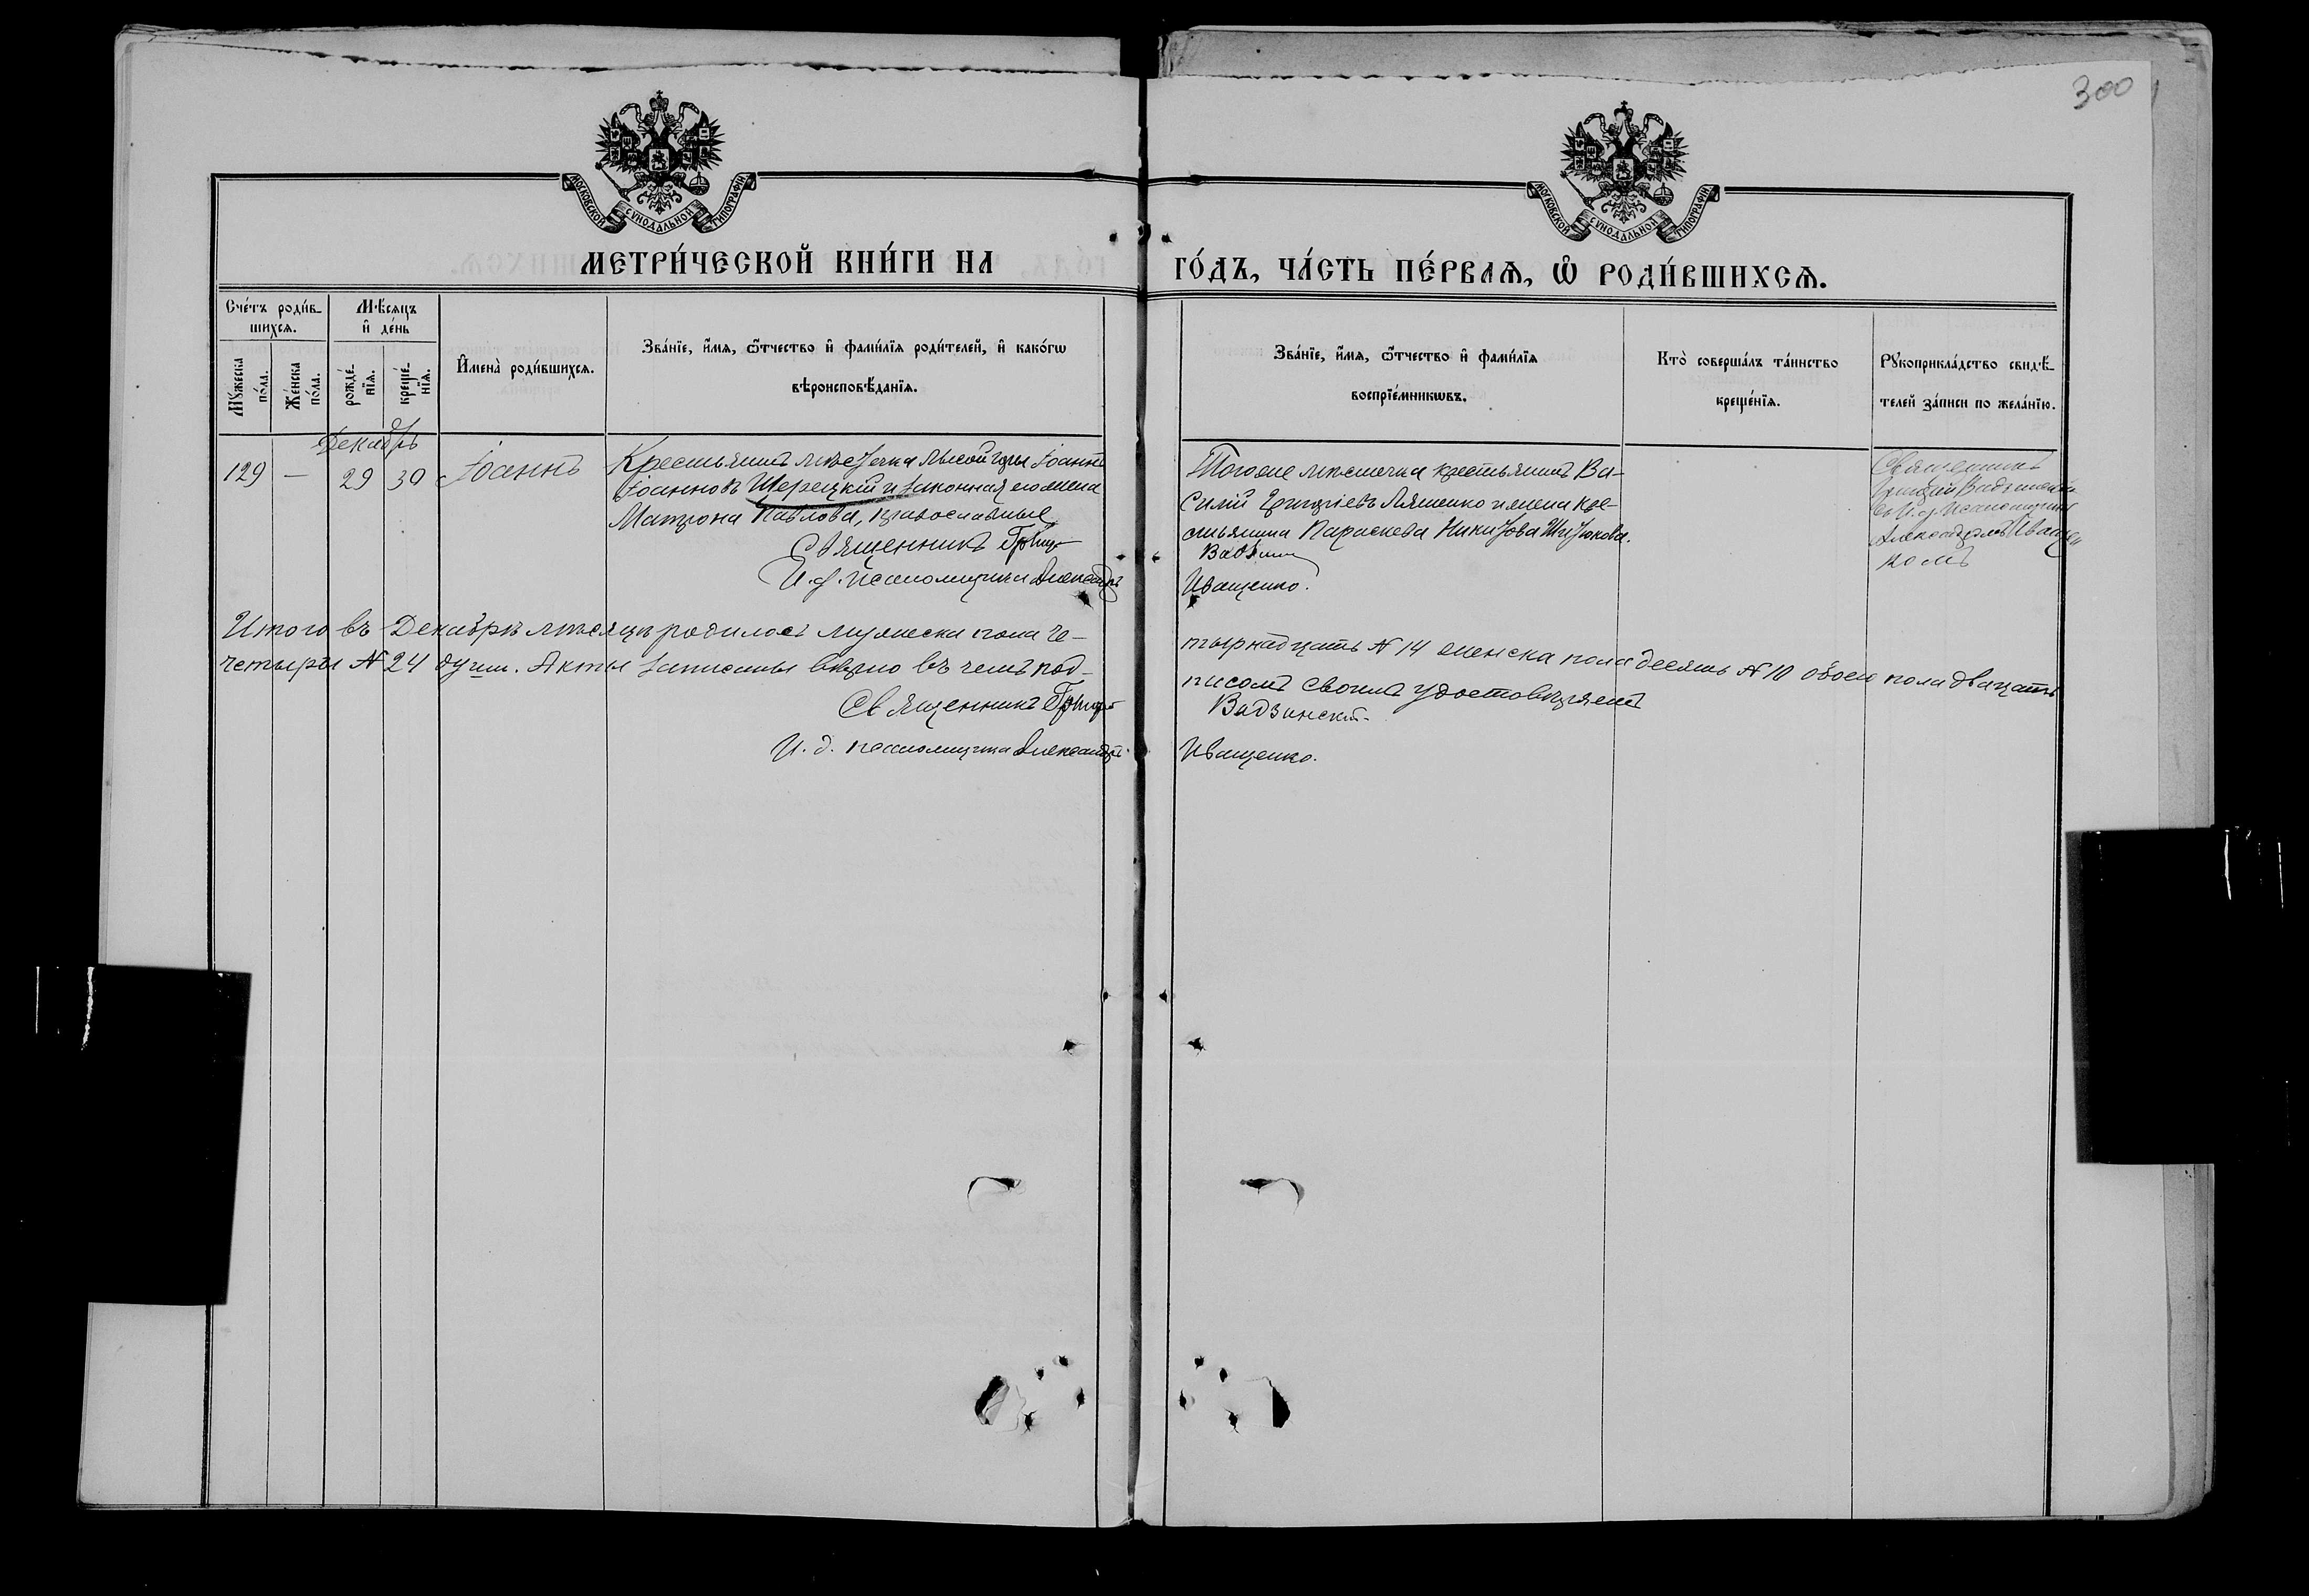 300
МОСКОВСКОЙ СУНОДАЛЬНОЙ ТИПОГРАФІИ
МОСКОВСКОЙ СУНОДАЛЬНОЙ ТИПОГРАФІИ
МЕТРИ́ЧЕСКОЙ КНИ́ГИ НА
ГО́ДЪ, ЧА́СТЬ ПЕ́РВАѦ, Ѽ РОДИ́ВШИХСѦ.
Сче́тъ роди́в-
шихсѧ.
Мѣ́сяцъ
и҆ де́нь
Мꙋ́жеска
по́ла.
Же́нска
по́ла.
рожде́-
нїѧ.
креще́-
нїѧ.
И҆мена̀ роди́вшихсѧ.
Зва́нїе, и҆́мѧ, ѻ҆́тчество и҆ фами́лїѧ роди́телей, и҆ како́гѡ
вѣроисповѣ́данїѧ.
Зва́нїе, и҆́мѧ, ѻ҆́тчество и҆ фами́лїѧ
воспрїе́мникѡвъ.
Кто̀ соверша́лъ та́инство
креще́нїѧ.
Рꙋкоприкла́дство свидѣ́-
телей за́писи по жела́нїю.
Декабрь
129 — 29 30 Іоаннъ
Крестьянинъ мѣстечка Лысой горы Іоаннъ
Іоанновъ Шерецкій и законная его жена
Матрона Павлова, православные
Священникъ Григор
И. д. псаломщика Александръ
Тогоже мѣстечка крестьянинъ Ва-
силій Григоріевъ Ляшенко и жена кре-
стьянина Параскева Никитова
Вадзин
Иващенко.
Священникъ
Григорій Вадзинскій
съ И. д. псаломщика
Александромъ Иващен
комъ
Итого въ Декабрѣ мѣсяцѣ родилось мужеска пола че-
тырнадцать № 14 женска пола десять № 10 обоего пола двацать
четыре № 24 душ. Акты записаны вѣрно въ чемъ под-
писомъ своимъ удостовѣряемъ
Священникъ Григор
Вадзинскій
И. д. псаломщика Александръ
Иващенко.